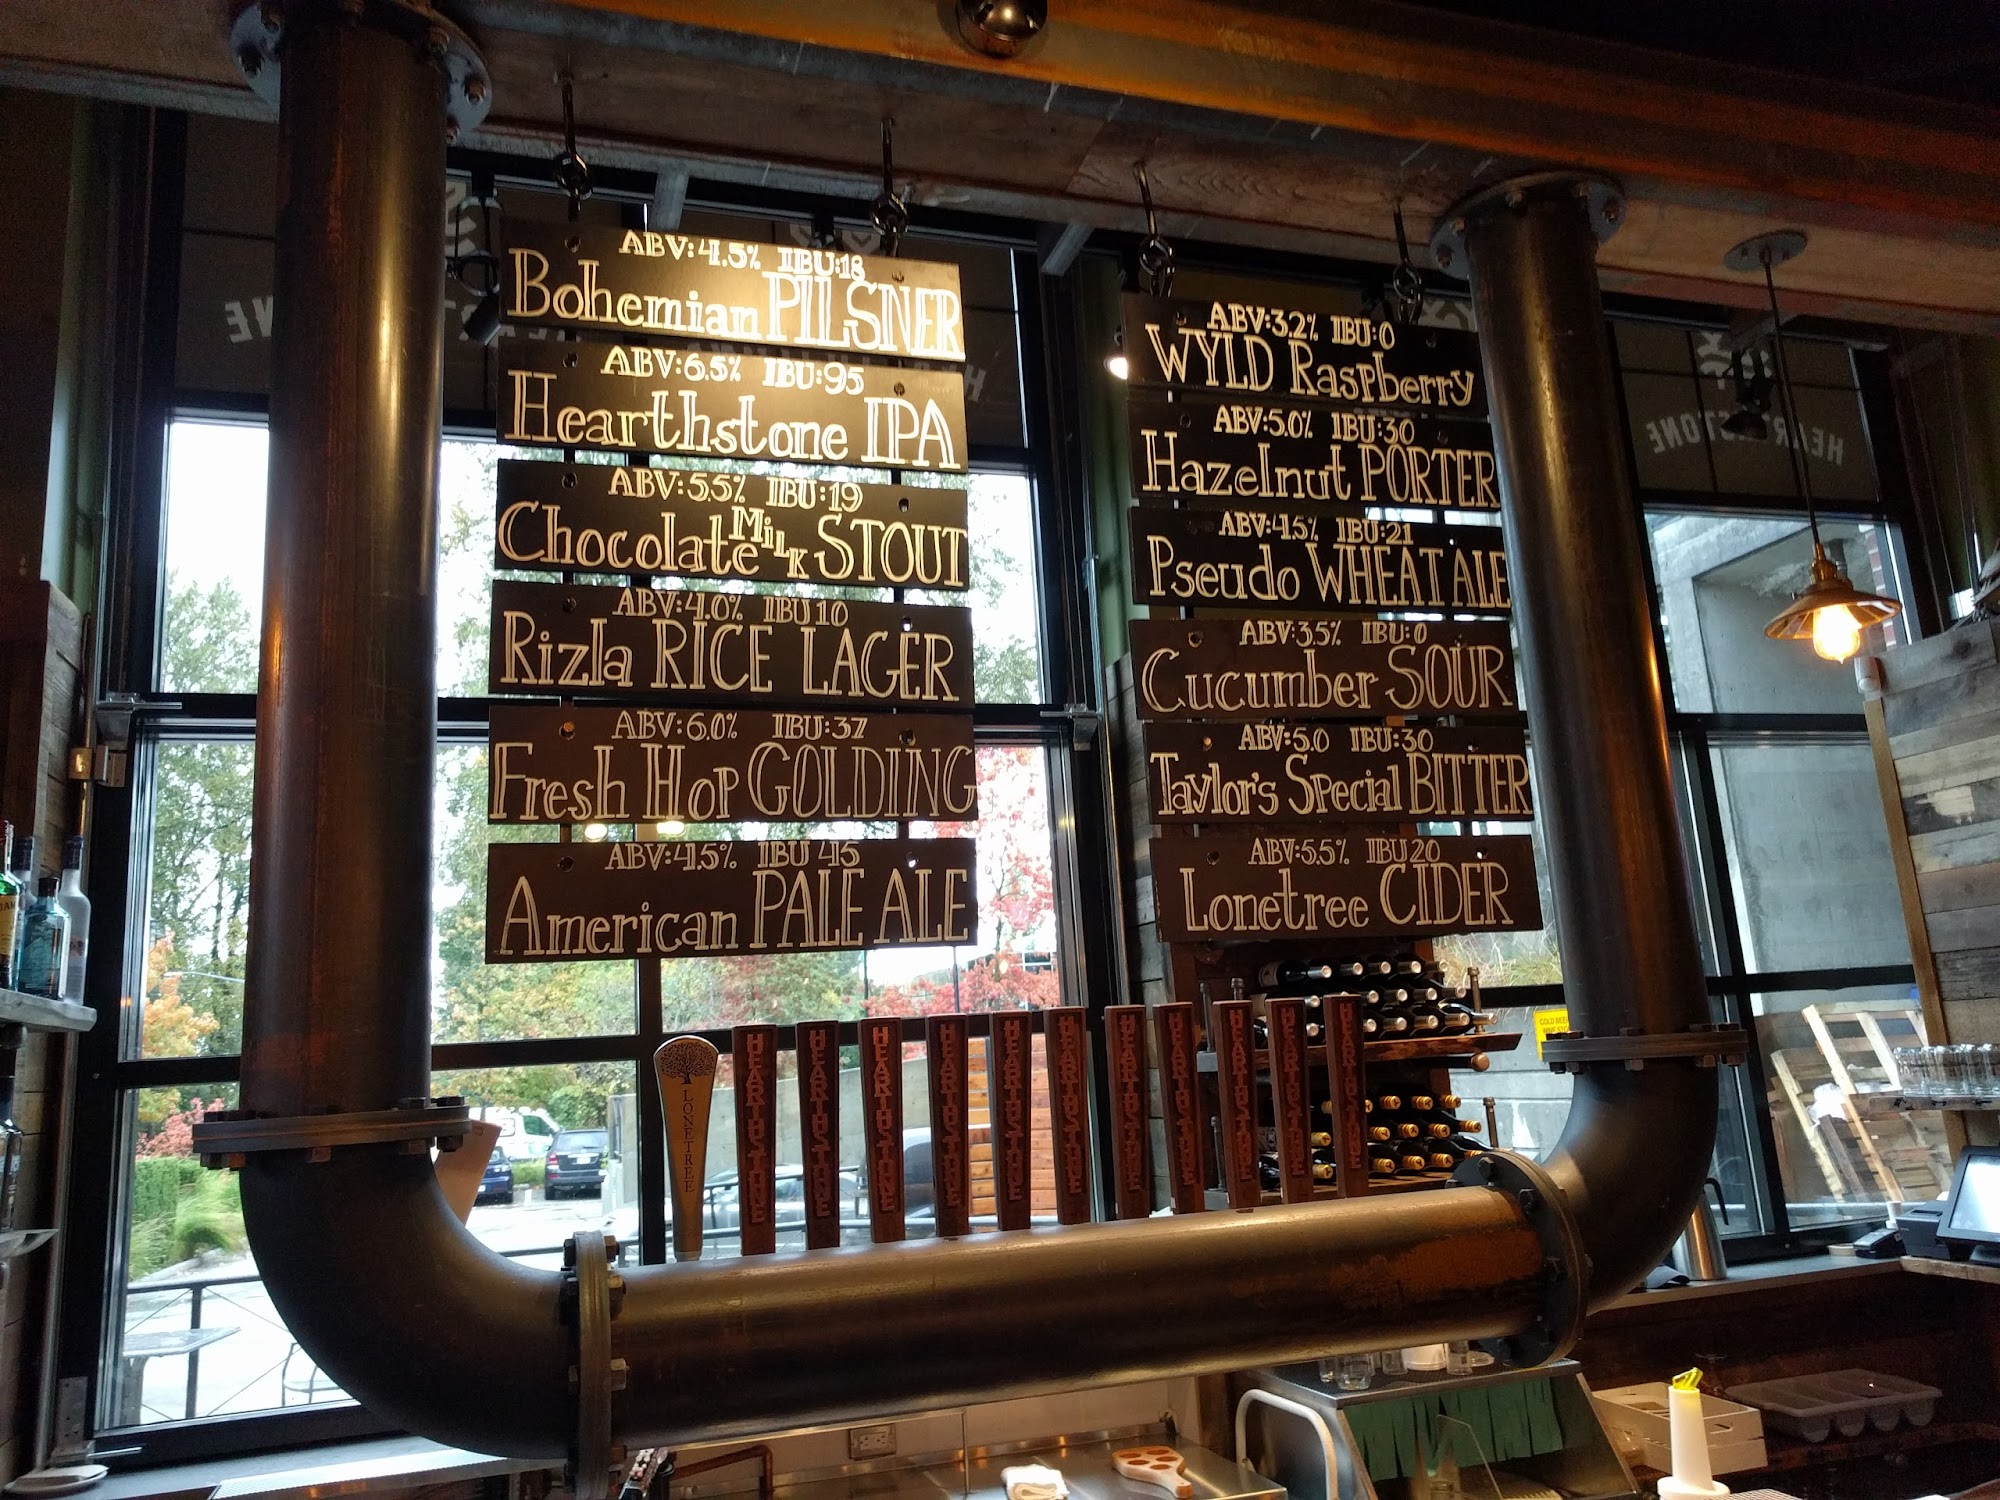 ABV:4.5% IBU:18
Bohemian PILSNER
ABV:6.5% IBU:95
Hearthstone IPA
ABV:5.5% IBU:19
Chocolate Milk STOUT
ABV:4.0% IBU 10
Rizla RICE LAGER
ABV:6.0% IBU:37
Fresh Hop GOLDING
ABV:4.5% IBU 45
American PALE ALE
ABV:3.2% IBU:0
WYLD Raspberry
ABV:5.0% IBU:30
Hazelnut PORTER
ABV:4.5% IBU:21
Pseudo WHEAT ALE
ABV:3.5% IBU:0
Cucumber SOUR
ABV:5.0 IBU:30
Taylor's Special BITTER
ABV:5.5% IBU 20
Lonetree CIDER
HEARTHSTONE
LONETREE
HEARTHSTONE
HEARTHSTONE
HEARTHSTONE
HEARTHSTONE
HEARTHSTONE
HEARTHSTONE
HEARTHSTONE
HEARTHSTONE
HEARTHSTONE
HEARTHSTONE
HEARTHSTONE